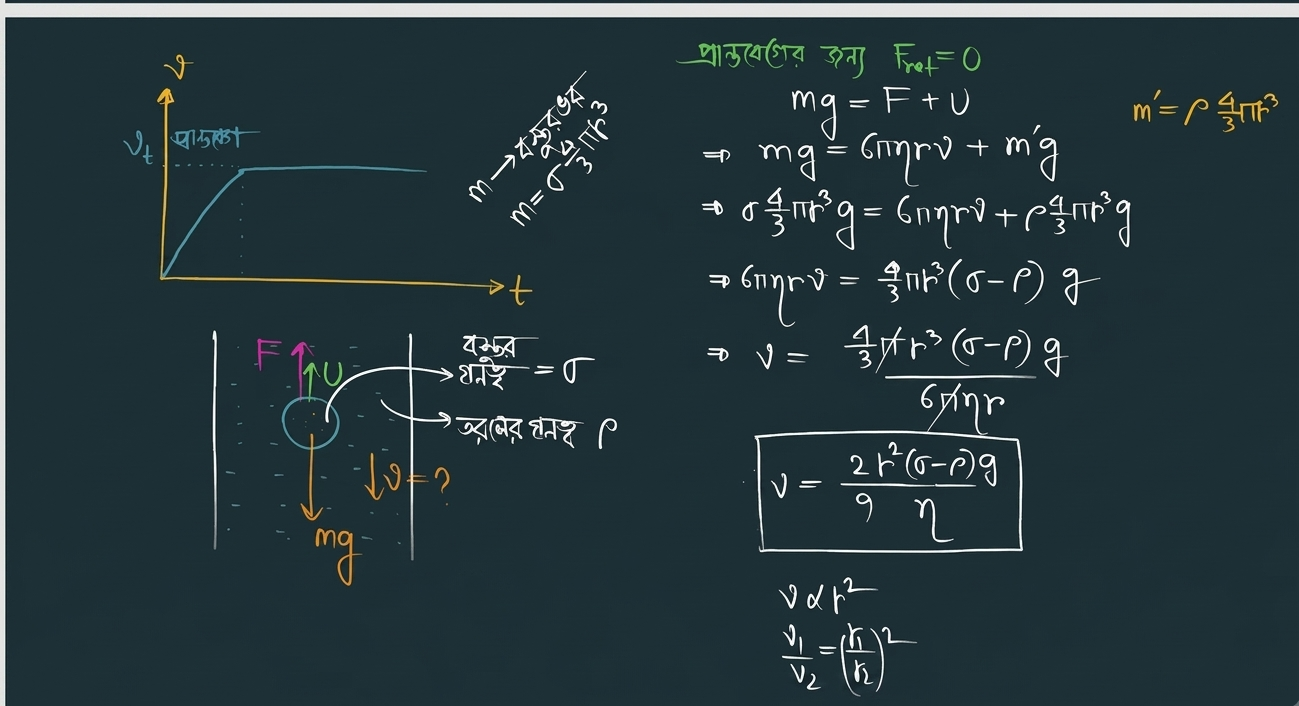 v
v_t প্রান্তবেগ
t
m → বস্তুর ভর
m = σ 4/3 πr³
F
U
বস্তুর ঘনত্ব = σ
তরলের ঘনত্ব ρ
↓v = ?
mg
প্রান্তবেগের জন্য F_net = 0
mg = F + U
⇒ mg = 6πηrv + m'g
m' = ρ 4/3 πr³
⇒ σ 4/3 πr³g = 6πηrv + ρ 4/3 πr³g
⇒ 6πηrv = 4/3 πr³(σ-ρ) g
⇒ v = 4/3 πr³(σ-ρ) g / 6πηr
v = 2r²(σ-ρ)g / 9 η
v ∝ r²
v₁/v₂ = (r₁/r₂)²